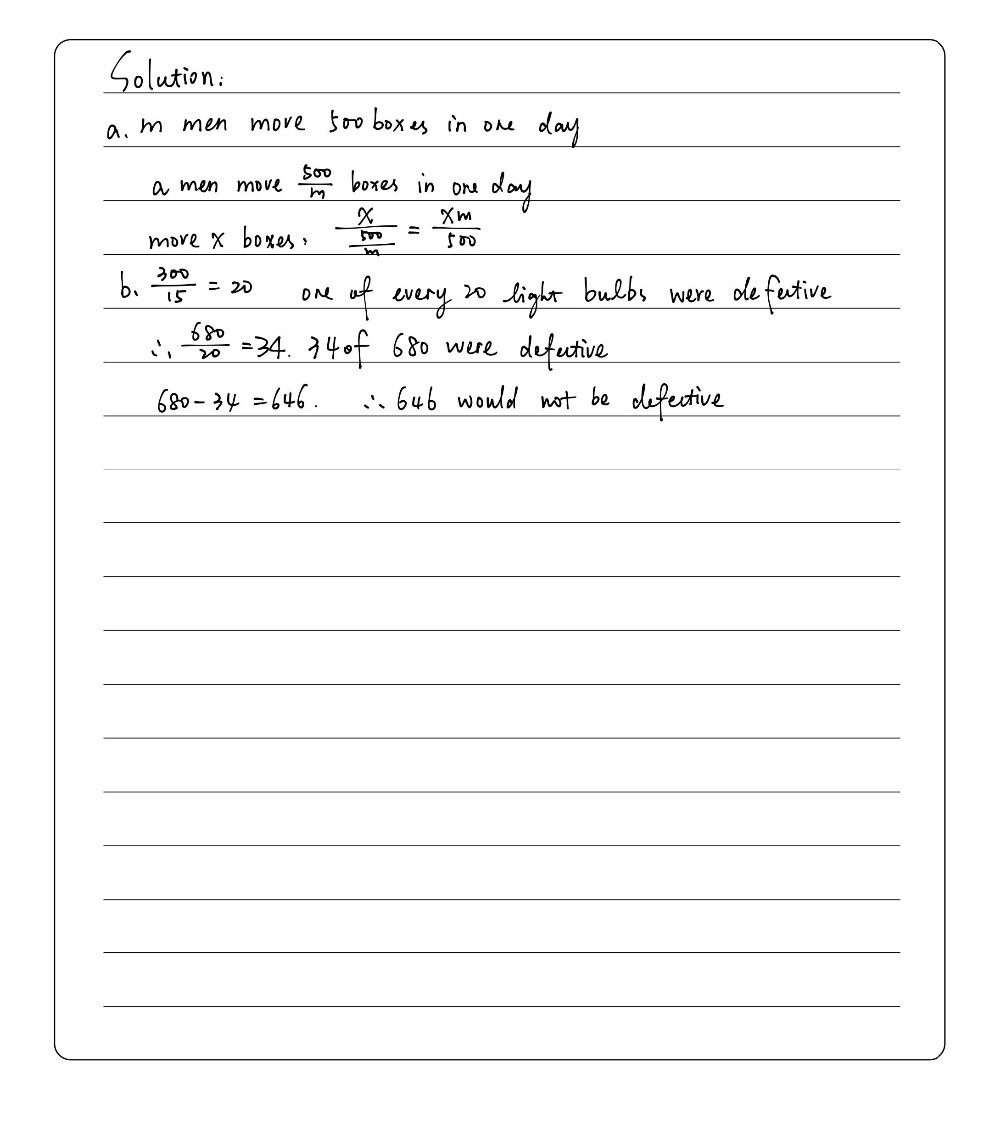 Solution:
a. m men move 500 boxes in one day
a men move \frac{500}{m} boxes in one day
move x boxes: \frac{x}{\frac{500}{m}} = \frac{xm}{500}
b. \frac{300}{15} = 20 one of every 20 light bulbs were defective
∴ \frac{680}{20} = 34. 34 of 680 were defective
680 - 34 = 646. ∴ 646 would not be defective